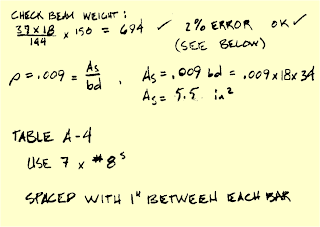 CHECK BEAM WEIGHT:
37x18/144 x 150 = 694 ✓ 2% ERROR OK ✓
(SEE BELOW)
ρ = .009 = As/bd , As = .009 bd = .009 x 18 x 34
As = 5.5 in²
TABLE A-4
USE 7 x #8s
SPACED WITH 1" BETWEEN EACH BAR